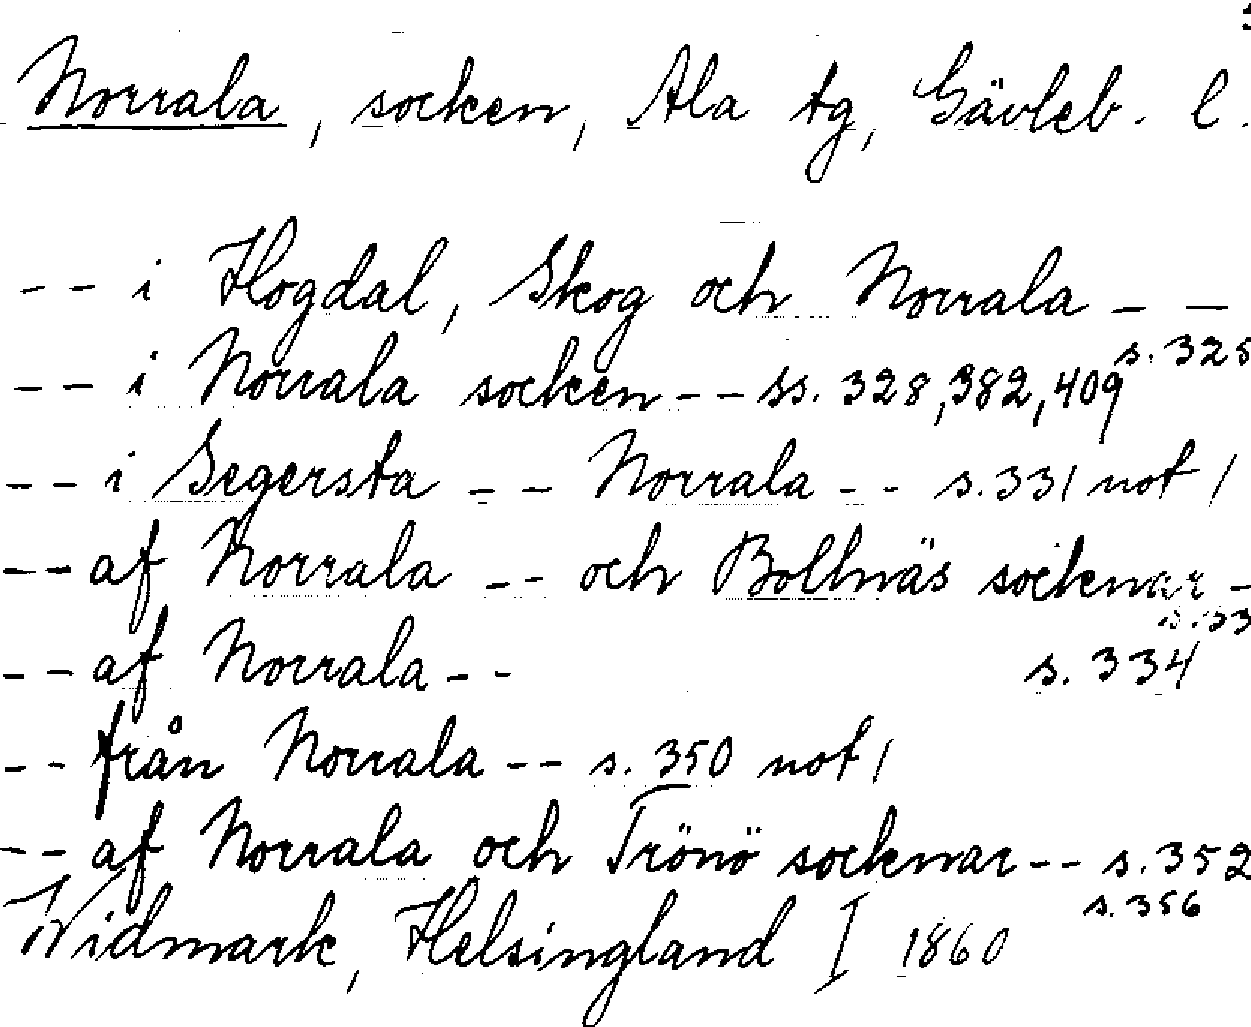 Norrala, socken, Ala tg, Gävleb. l.
-- i Hogdal, Skog och Norrala --
s. 325
-- i Norrala socken -- ss. 328, 382, 409
-- i Segersta -- Norrala -- s. 331 not 1
-- af Norrala -- och Bollnäs socknar -
s. 33
-- af Norrala -- s. 334
-- från Norrala -- s. 350 not 1
-- af Norrala och Trönö socknar -- s. 352
s. 356
Widmark, Helsingland I 1860